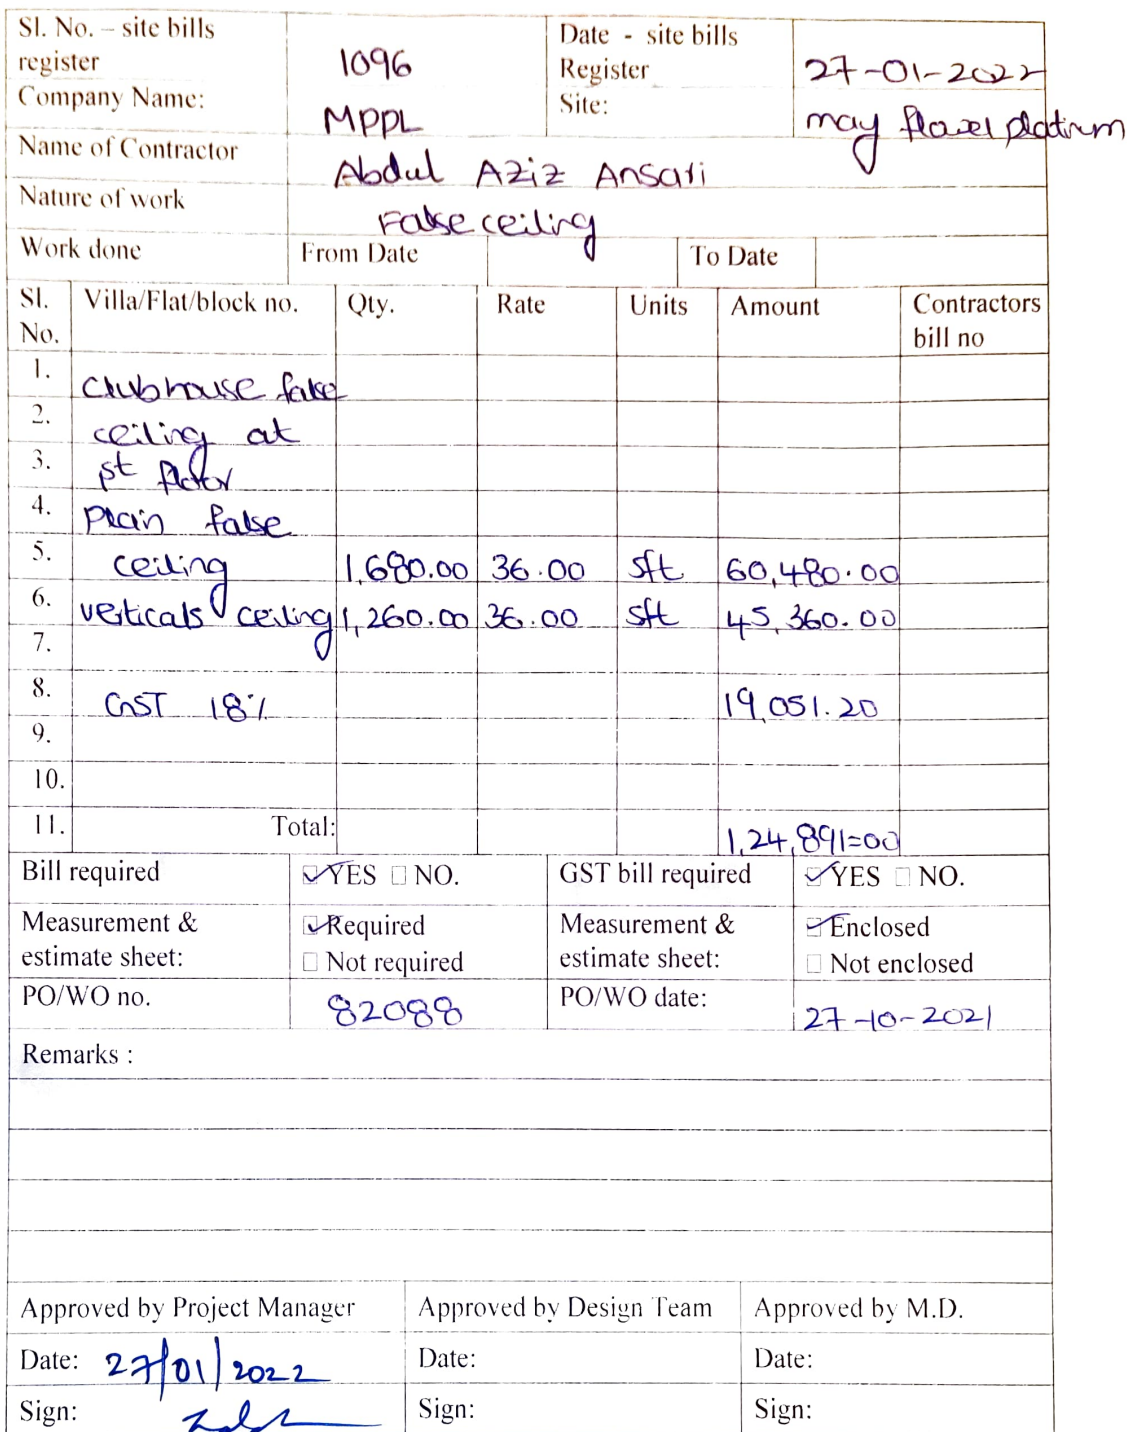 Sl. No. – site bills register 1096 Date - site bills Register 27-01-2022
Company Name: MPPL Site: may flower platinum
Name of Contractor Abdul Aziz Ansari
Nature of work False ceiling
Work done From Date To Date
Sl. No. Villa/Flat/block no. Qty. Rate Units Amount Contractors bill no
1. Clubhouse false
2. ceiling at
3. 1st floor
4. Plain false
5. ceiling 1,680.00 36.00 sft 60,480.00
6. verticals ceiling 1,260.00 36.00 sft 45,360.00
7.
8. GST 18% 19,051.20
9.
10.
11. Total: 1,24,891=00
Bill required YES NO. GST bill required YES NO.
Measurement & estimate sheet: Required Not required Measurement & estimate sheet: Enclosed Not enclosed
PO/WO no. 82088 PO/WO date: 27-10-2021
Remarks :
Approved by Project Manager Approved by Design Team Approved by M.D.
Date: 27/01/2022 Date: Date:
Sign: Sign: Sign: